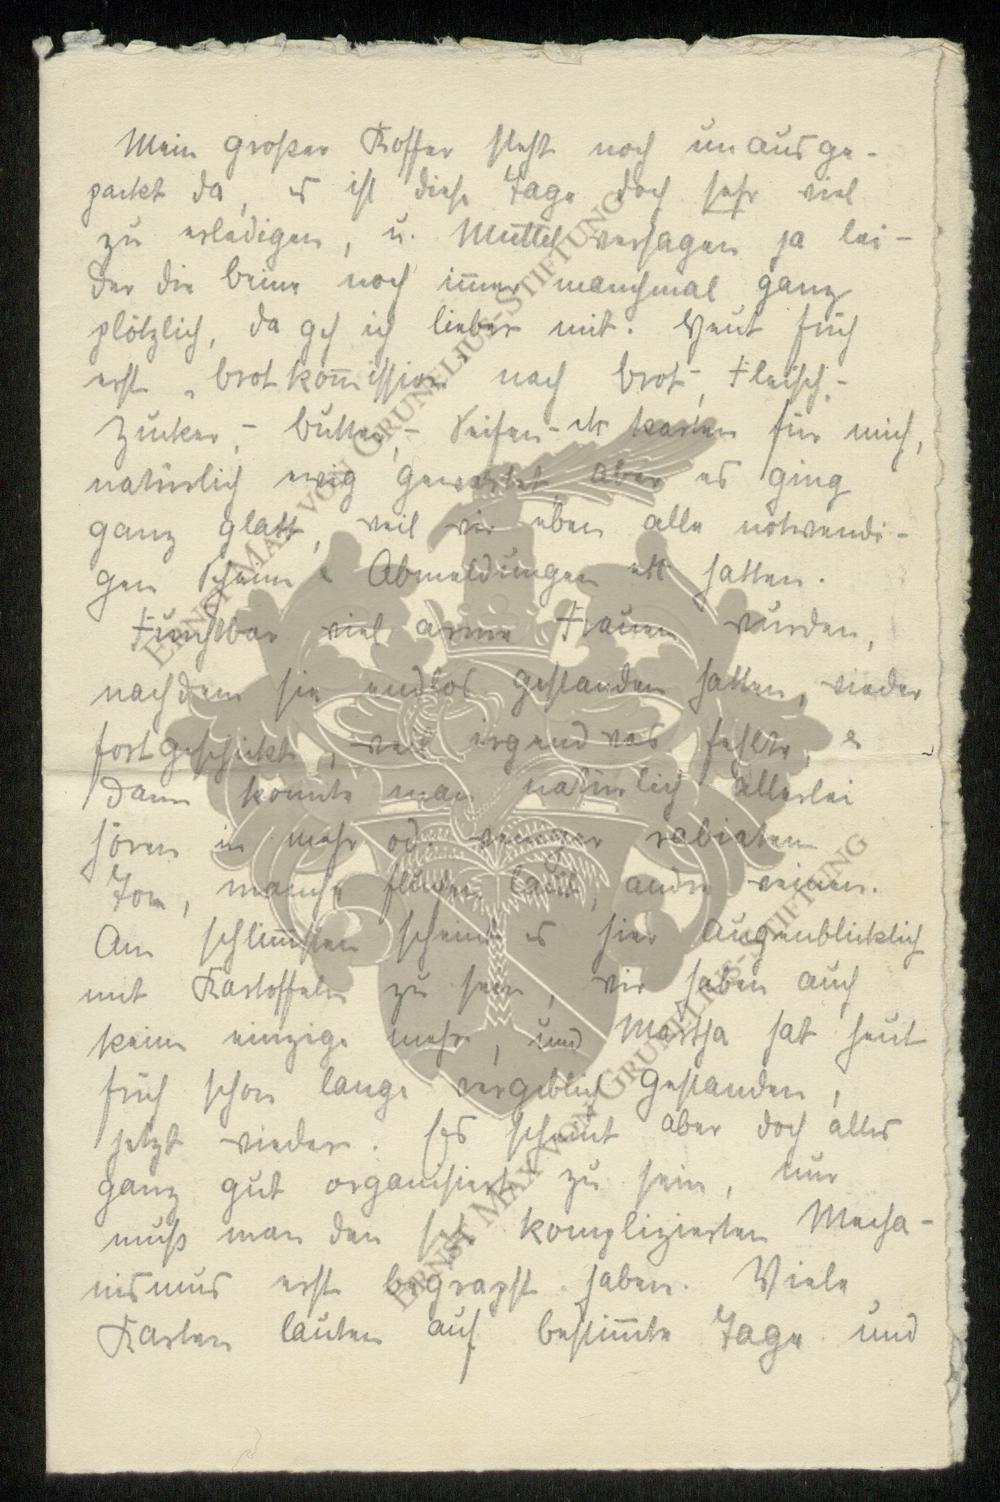 Mein großer Koffer steht noch unausge-
packt da, es ist diese Tage doch sehr viel
zu erledigen, u. Muttel versagen ja lei-
der die Beine noch im̅er manchmal ganz
plötzlich, da geh ich lieber mit. Heut früh
erst Brotkom̅ission nach Brot-, Fleisch-,
Zucker-, Butter-, Seifen- etc karten für mich,
natürlich ewig gewartet, aber es ging
ganz glatt, weil wir eben alle notwendi-
gen Scheine & Abmeldungen etc hatten.
Furchtbar viel arme Frauen wurden,
nachdem sie endlos gestanden hatten, wieder
fortgeschickt, weil irgend was fehlte, &
dann konnte man natürlich allerlei
hören in mehr od. weniger rabiatem
Ton, manche fluchen laut, andre weinen.
Am schlim̅sten scheint es hier augenblicklich
mit Kartoffeln zu sein, wir haben auch
keine einzige mehr, und Martha hat heut
früh schon lange vergeblich gestanden,
jetzt wieder. Es scheint aber doch alles
ganz gut organisiert zu sein, nur
muß man den sehr komplizierten Mecha-
nismus erst begrapst haben. Viele
Karten lauten auf bestim̅te Tage und
ERNST MAX VON GRUNELIUS-STIFTUNG
ERNST MAX VON GRUNELIUS-STIFTUNG